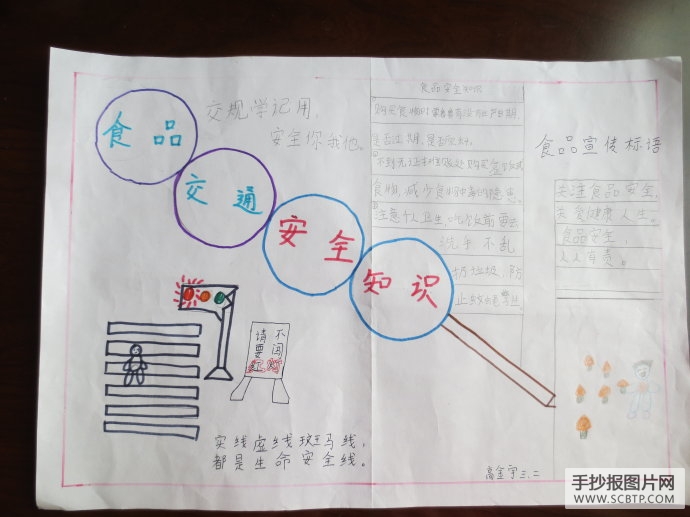 食品
交通
安全
知识
交规学记用,
安全你我他。
请不
要闯
红灯
实线虚线斑马线,
都是生命安全线。
食品安全知识
购买食物时 看看有没有生产日期,
是否过期,是否
不到无证摊贩处购买
食物,减少食物中毒的隐患。
注意个人卫生,吃饭前要去
洗手 不乱
扔垃圾 防
止蚊蝇
食品宣传标语
关注食品安全,
关爱健康人生。
食品安全,
人人有责。
高金宇三、二
手抄报图片网
WWW.SCBTP.COM